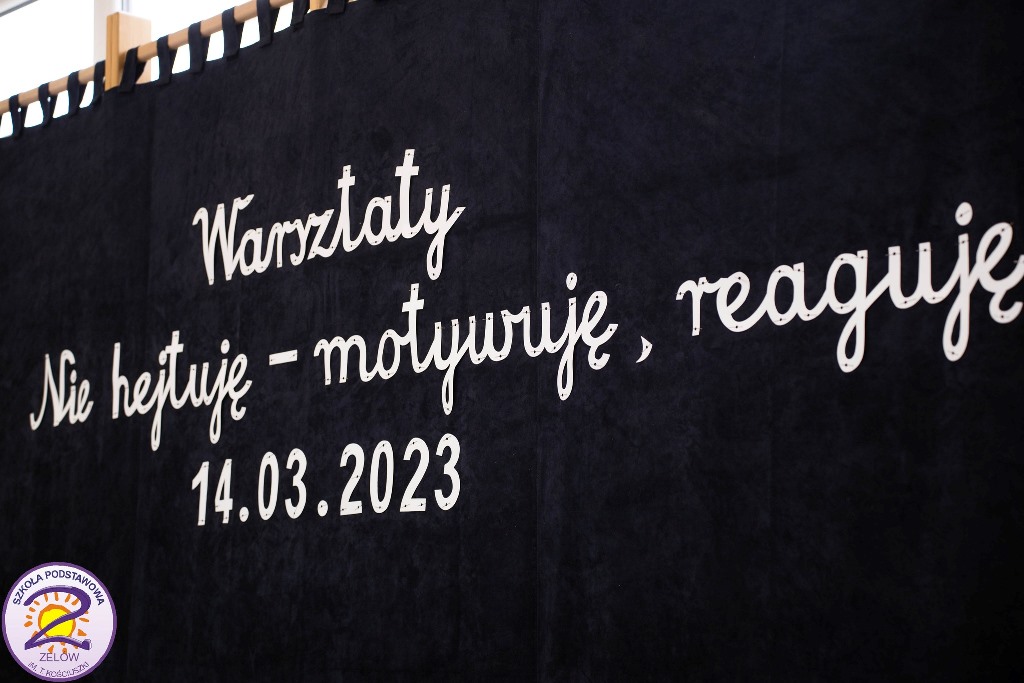 Warsztaty
Nie hejtuję - motywuję, reaguję
14.03.2023
SZKOŁA PODSTAWOWA
2
ZELÓW
IM. T. KOŚCIUSZKI